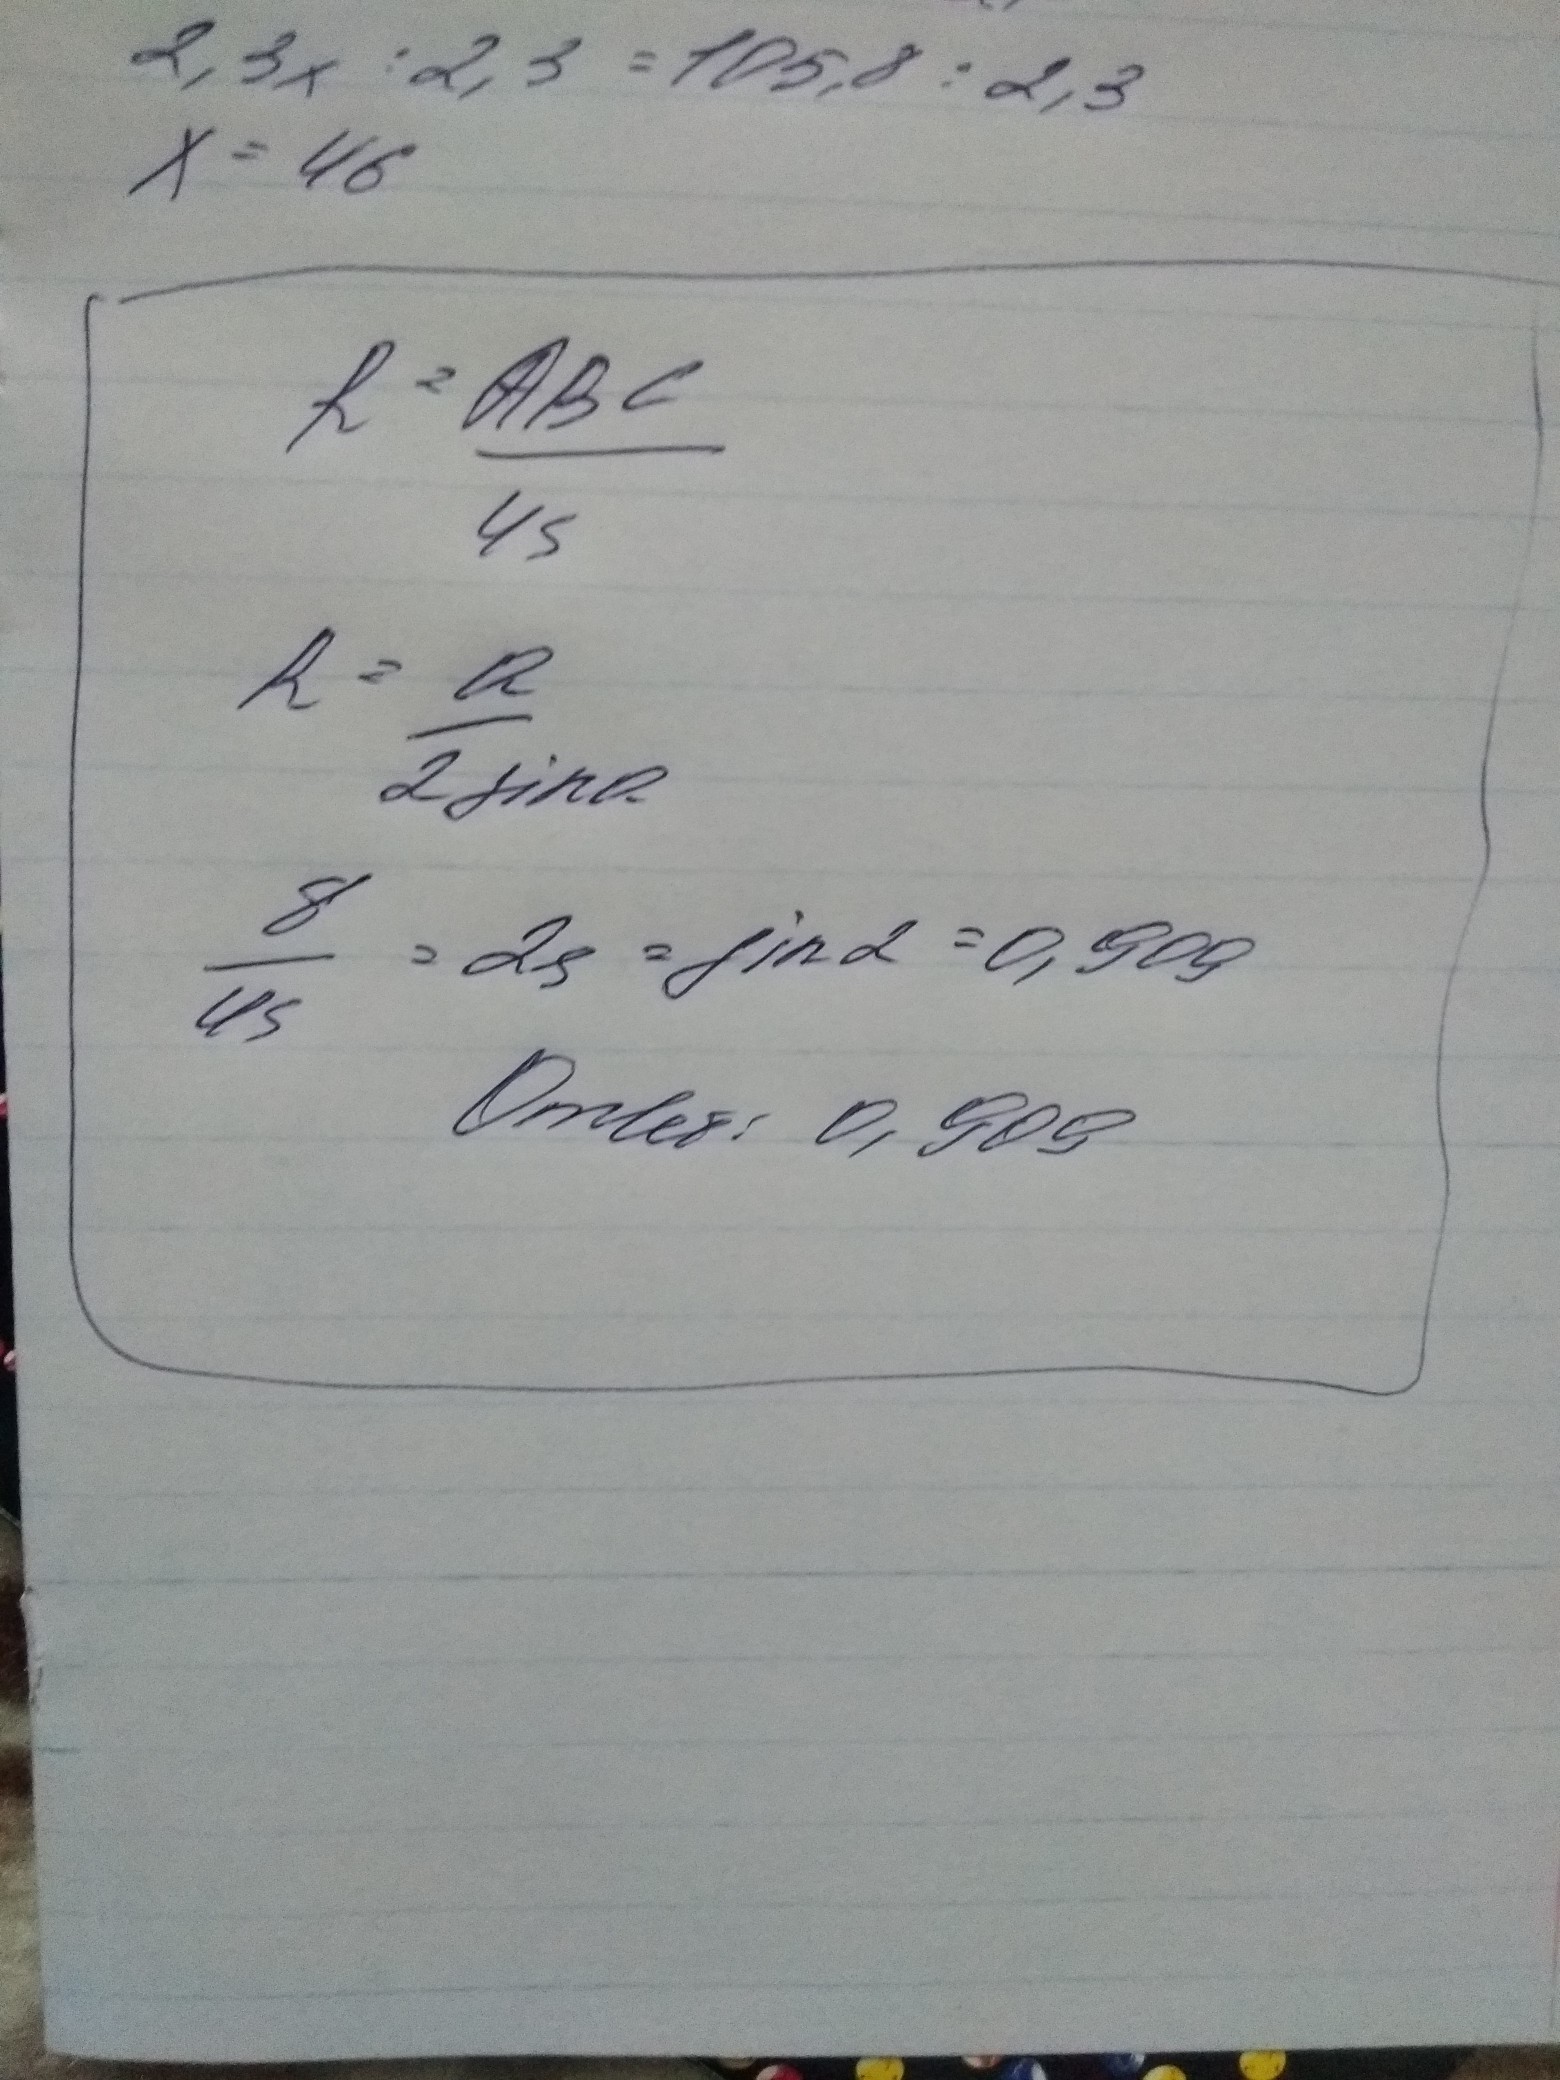 2,3x : 2,3 = 105,8 : 2,3
x = 46
R = ABC
4s
R = a
2 sin a
8
4s = 2s = sin 2 = 0,909
Ответ: 0,909